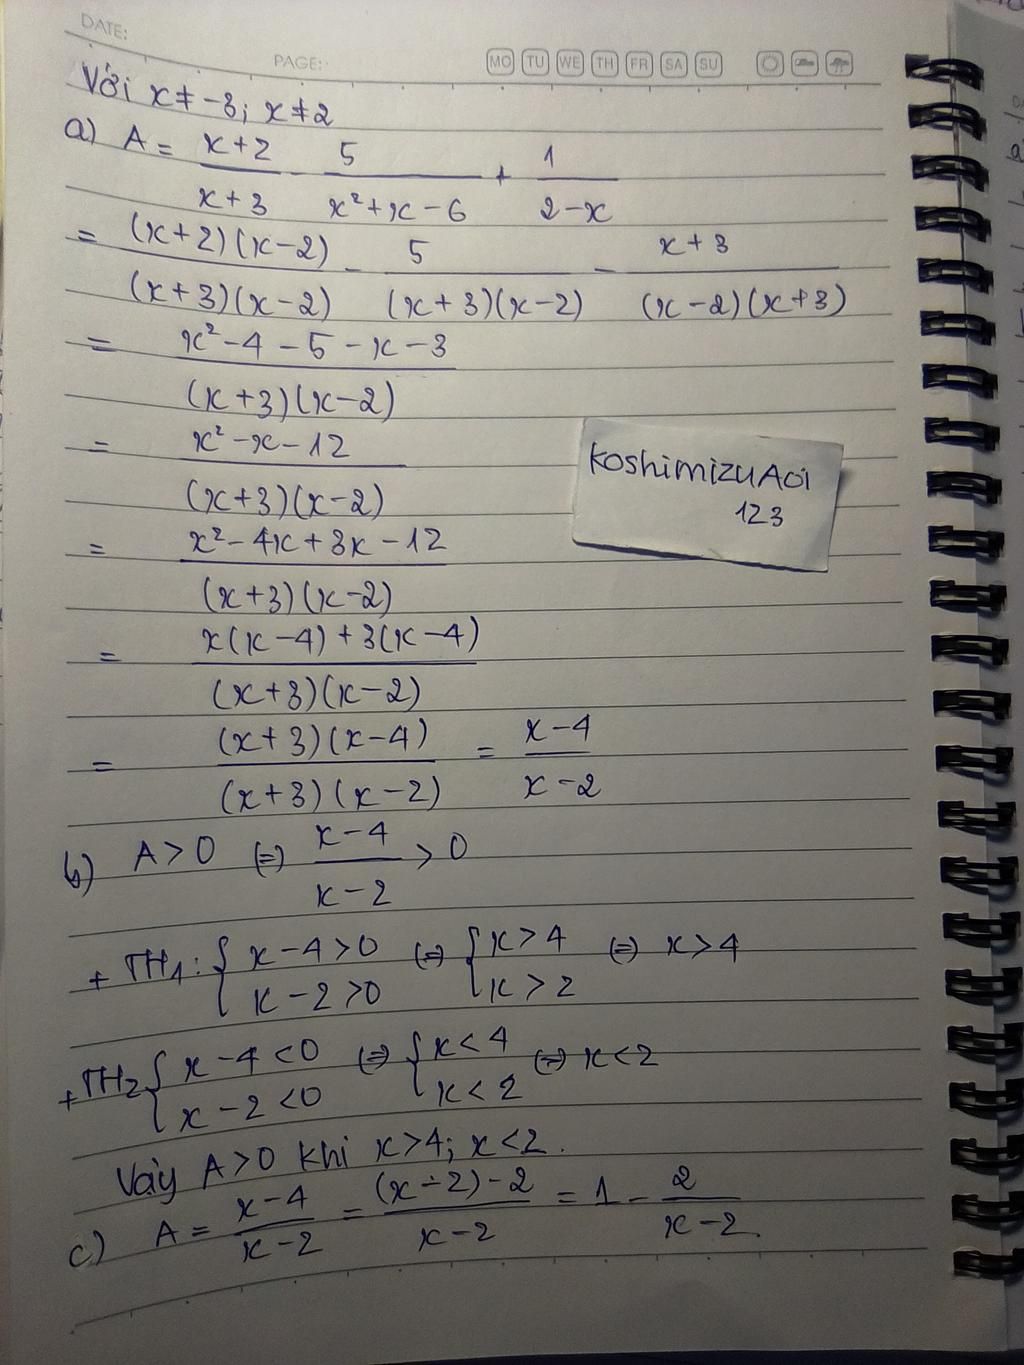 DATE:
PAGE: MO TU WE TH FR SA SU
Với x ≠ -3; x ≠ 2
a) A = (x+2)/(x+3) - 5/(x²+x-6) + 1/(2-x)
= ((x+2)(x-2))/((x+3)(x-2)) - 5/((x+3)(x-2)) - (x+3)/((x-2)(x+3))
= (x²-4-5-x-3)/((x+3)(x-2))
= (x²-x-12)/((x+3)(x-2))
KoshimizuAoi
123
= (x²-4x+3x-12)/((x+3)(x-2))
= (x(x-4)+3(x-4))/((x+3)(x-2))
= ((x+3)(x-4))/((x+3)(x-2)) = (x-4)/(x-2)
b) A > 0 (=) (x-4)/(x-2) > 0
+ TH1: { x-4>0 ; x-2>0 (=) { x>4 ; x>2 (=) x>4
+ TH2 { x-4<0 ; x-2<0 (=) { x<4 ; x<2 (=) x<2
Vậy A>0 khi x>4; x<2.
c) A = (x-4)/(x-2) = ((x-2)-2)/(x-2) = 1 - 2/(x-2).